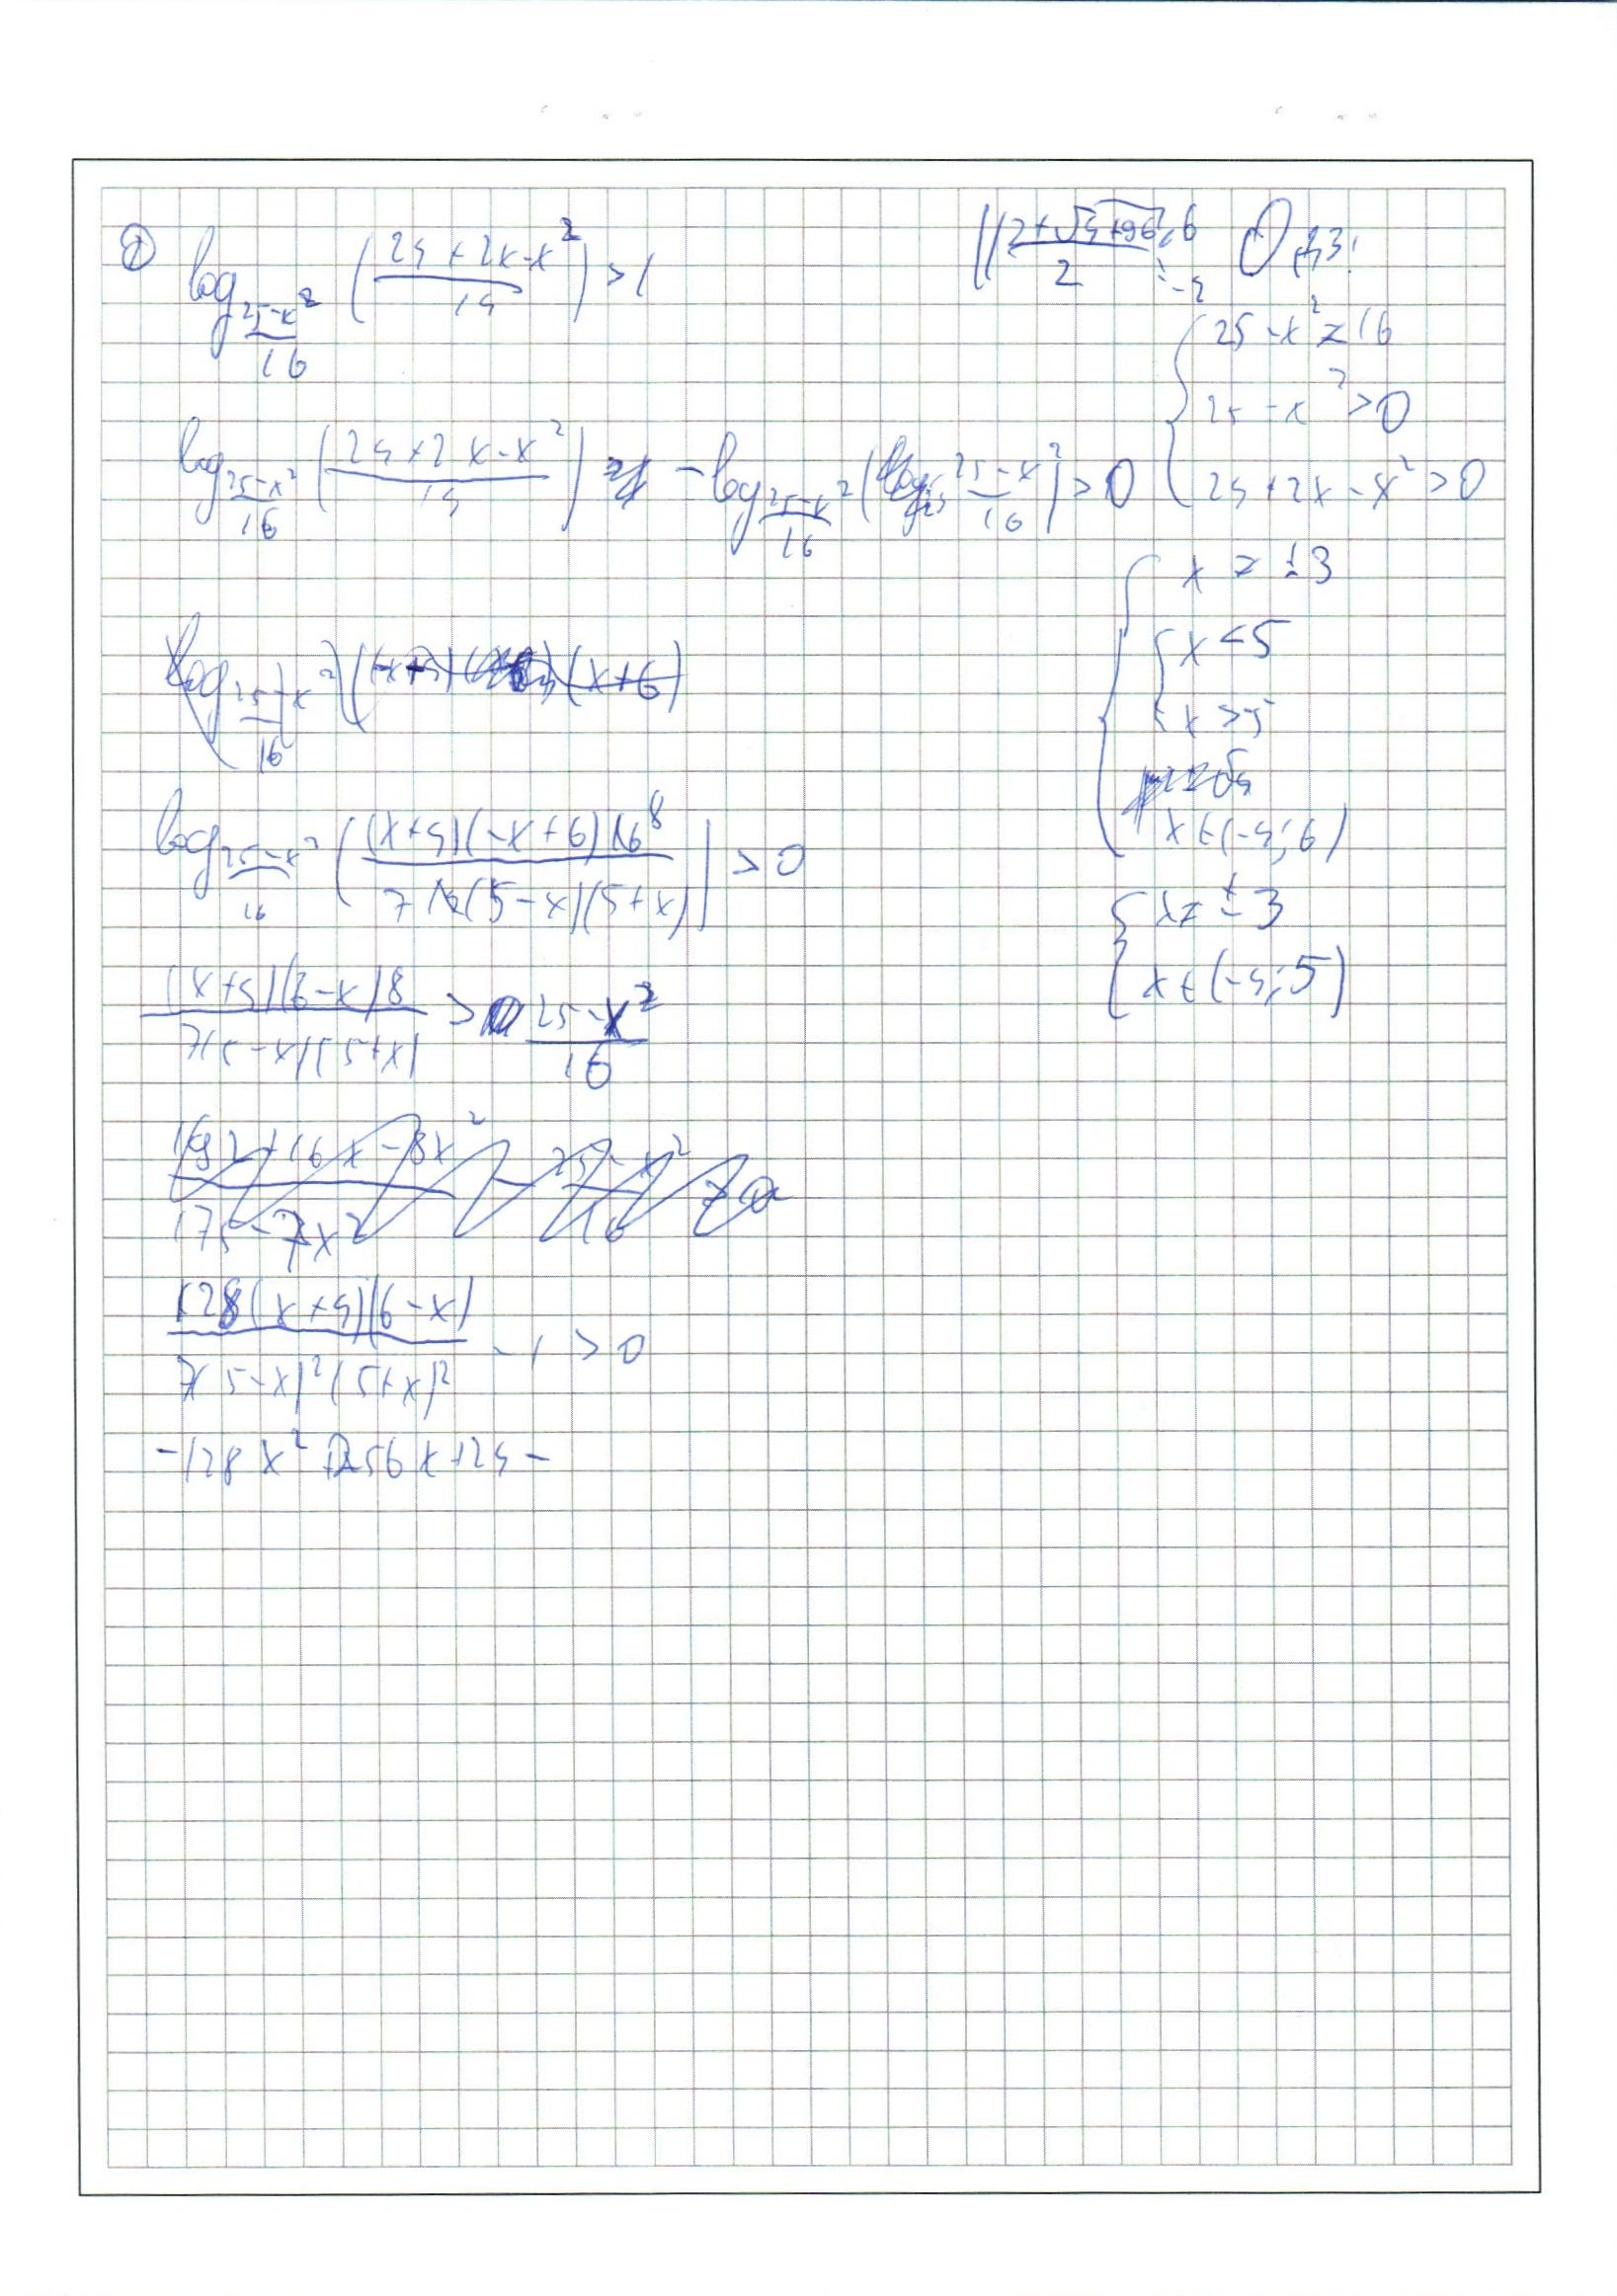 ① log_{(25-x²)/16} ((24+2x-x²)/14) > 1
log_{(25-x²)/16} ((24+2x-x²)/14) - log_{(25-x²)/16} ((25-x²)/16) > 0
log_{(25-x²)/16} ((x+4)(-x+6)16 8 / 7 (5-x)(5+x)) > 0
(x+4)(6-x)8 / 7(5-x)(5+x) > (25-x²)/16
192+16x-8x² / 175-7x² - (25-x²)/16
128(x+4)(6-x) / 7(5-x)²(5+x)² - 1 > 0
-128x² + 256x + 24 -
(2+√(4+96))/2 6 -4 ОДЗ:
25-x² ≠ 16
25-x² > 0
24+2x-x² > 0
x ≠ ±3
x < 5
x > -5
x ∈ (-4; 6)
x ≠ ±3
x ∈ (-4; 5)